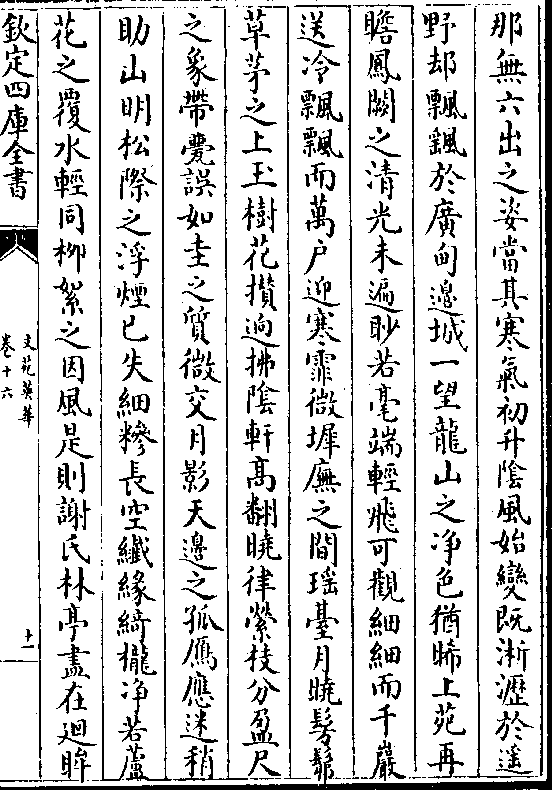 那無六出之姿當其寒氣初升陰風始變既淅瀝於遥
野却飄颻於廣甸邊城一望龍山之浄色猶睎上苑再
瞻鳳闕之清光未遍眇若毫端輕飛可觀細細而千巖
送冷飄飄而萬户迎寒霏微墀廡之間瑶臺月曉髣髴
草茅之上玉樹花攅逈拂陰軒高翻曉律縈枝分盈尺
之象帶甍誤如圭之質微交月影天邊之孤鴈應迷稍
助山明松際之浮煙已失細糝長空纖緣綺櫳浄若蘆
花之覆水輕同栁絮之因風是則謝氏林亭盡在廻眸
欽定四庫全書
文苑英華
卷十六
十一